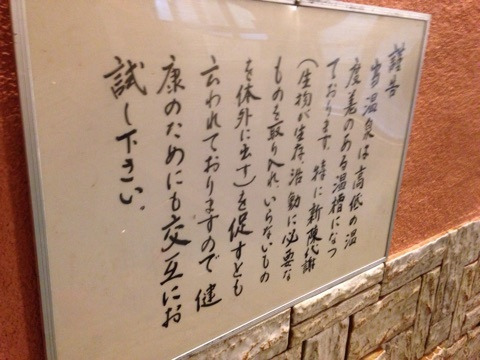 謹告
当温泉は高低の温
度差のある温槽になっ
ております。特に新陳代謝
(生物が生存、活動に必要な
ものを取り入れ、いらないもの
を体外に出す)を促すとも
云われておりますので健
康のためにも交互にお
試し下さい。